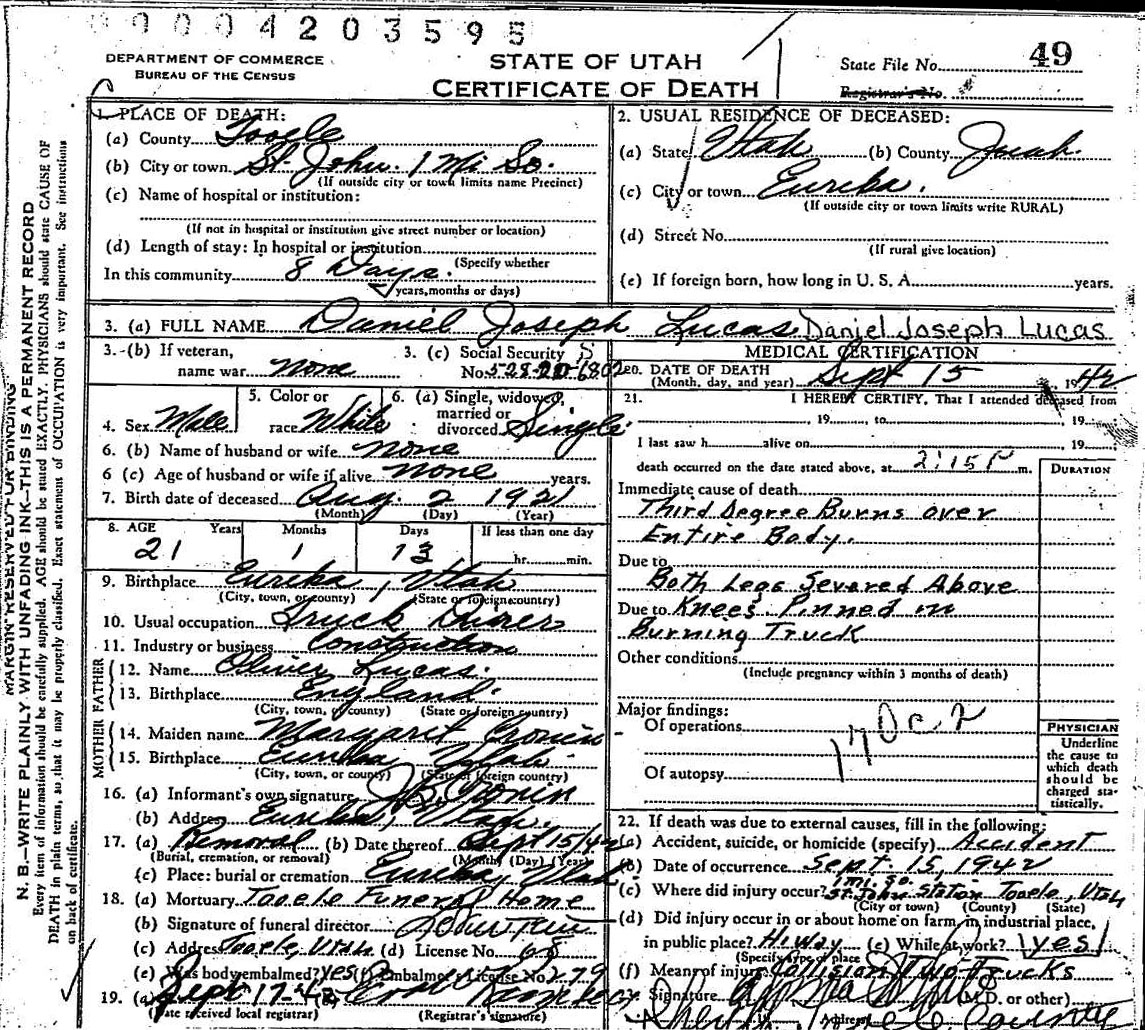 00004203595
DEPARTMENT OF COMMERCE
BUREAU OF THE CENSUS
STATE OF UTAH
CERTIFICATE OF DEATH
State File No. 49
Registrar's No.
MARGIN RESERVED FOR BINDING
N. B.—WRITE PLAINLY WITH UNFADING INK—THIS IS A PERMANENT RECORD
Every item of information should be carefully supplied. AGE should be stated EXACTLY. PHYSICIANS should state CAUSE OF
DEATH in plain terms, so that it may be properly classified. Exact statement of OCCUPATION is very important. See instructions
on back of certificate.
1. PLACE OF DEATH:
(a) County Tooele
(b) City or town St. John. 1 Mi So.
(If outside city or town limits name Precinct)
(c) Name of hospital or institution:
(If not in hospital or institution give street number or location)
(d) Length of stay: In hospital or institution
(Specify whether
In this community 8 Days.
years, months or days)
2. USUAL RESIDENCE OF DECEASED:
(a) State Utah (b) County Juab.
(c) City or town Eureka.
(If outside city or town limits write RURAL)
(d) Street No.
(If rural give location)
(e) If foreign born, how long in U. S. A. years.
3. (a) FULL NAME Daniel Joseph Lucas Daniel Joseph Lucas
3.-(b) If veteran,
name war None
3. (c) Social Security
No. 528-20-6802
4. Sex Male
5. Color or
race White
6. (a) Single, widowed,
married or
divorced Single
6. (b) Name of husband or wife None
6 (c) Age of husband or wife if alive None years.
7. Birth date of deceased Aug. 2 1921
(Month) (Day) (Year)
8. AGE Years Months Days If less than one day
21 1 13 hr. min.
9. Birthplace Eureka, Utah
(City, town, or county) (State or foreign country)
10. Usual occupation Truck Driver
11. Industry or business Construction
FATHER
12. Name Oliver Lucas.
13. Birthplace England.
(City, town, or county) (State or foreign country)
MOTHER
14. Maiden name Margaret Cronin
15. Birthplace Eureka Utah
(City, town, or county) (State or foreign country)
16. (a) Informant's own signature J.B. Cronin
(b) Address Eureka, Utah.
17. (a) Removal (b) Date thereof Sept 15/42
(Burial, cremation, or removal) (Month) (Day) (Year)
(c) Place: burial or cremation Eureka, Utah
18. (a) Mortuary Tooele Funeral Home
(b) Signature of funeral director
(c) Address Tooele, Utah (d) License No. 68
(e) Was body embalmed? Yes (f) Embalmer's License No. 279
19. (a) Sept 17-42
(Date received local registrar) (Registrar's signature)
MEDICAL CERTIFICATION
20. DATE OF DEATH
(Month, day, and year) Sept 15 1942
21. I HEREBY CERTIFY, That I attended deceased from
19 to 19
I last saw h alive on 19
death occurred on the date stated above, at 2:15 P m.
DURATION
Immediate cause of death
Third Degree Burns over
Entire Body.
Due to
Both Legs Severed Above
Due to Knees Pinned in
Burning Truck
Other conditions
(Include pregnancy within 3 months of death)
Major findings:
Of operations
17 Oc. 2
Of autopsy
PHYSICIAN
Underline
the cause to
which death
should be
charged sta-
tistically.
22. If death was due to external causes, fill in the following:
(a) Accident, suicide, or homicide (specify) Accident
(b) Date of occurrence Sept. 15, 1942
1 mi. so.
(c) Where did injury occur? St. John Station Tooele, Utah
(City or town) (County) (State)
(d) Did injury occur in or about home on farm, in industrial place,
in public place? HiWay (e) While at work? yes
(Specify type of place
(f) Means of injury Collision Two Trucks
Signature (M.D. or other)
Sheriff Tooele County
Address